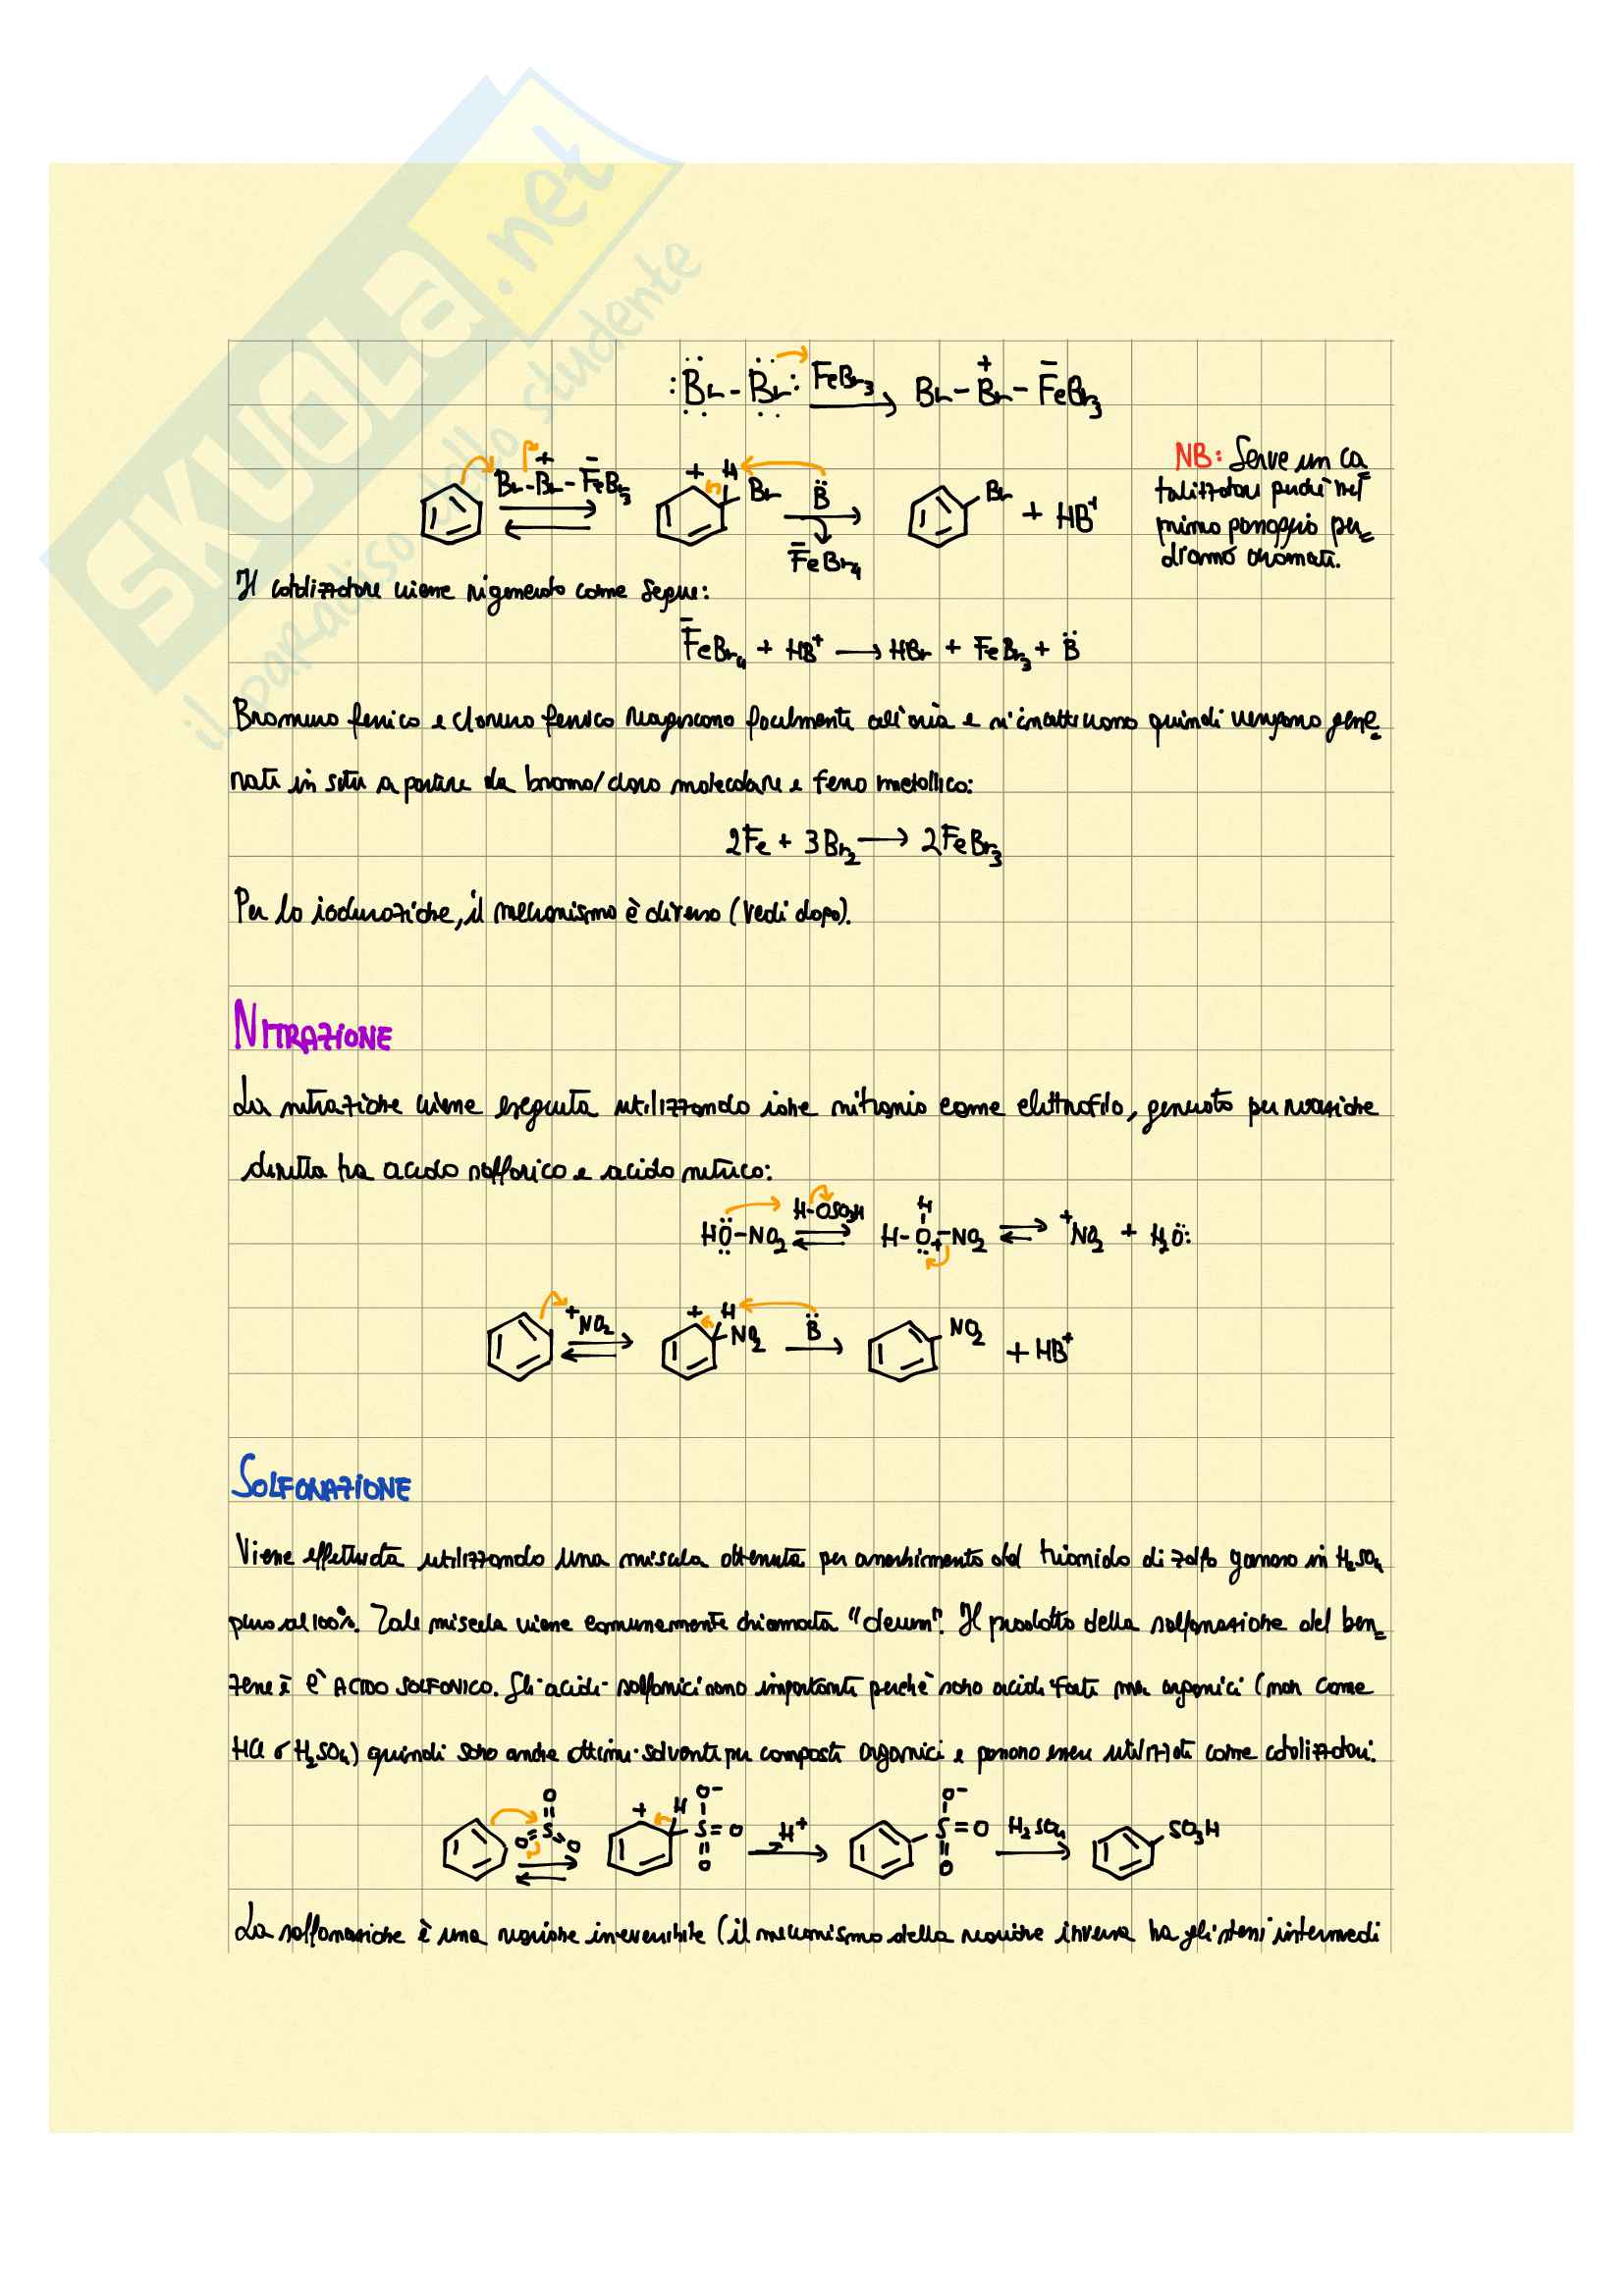 SKUOLA.net
il paradiso dello studente
:Br-Br: FeBr₃ → Br-Br⁺-FeBr₃⁻
Br-Br⁺-FeBr₃⁻ + H Br B̈ FeBr₄⁻ Br + HB⁺
NB: Serve un ca
talizzatore perché nel
primo passaggio per
diamo aromati.
Il catalizzatore viene rigenerato come segue:
FeBr₄⁻ + HB⁺ → HBr + FeBr₃ + B̈
Bromuro ferrico e cloruro ferrico reagiscono facilmente all'aria e si inattivano quindi vengono gene
rati in situ a partire da bromo/cloro molecolare e ferro metallico:
2Fe + 3Br₂ → 2FeBr₃
Per lo iodurazione, il meccanismo è diverso (vedi dopo).
NITRAZIONE
La nitrazione viene eseguita utilizzando ione nitronio come elettrofilo, generato per reazione
diretta tra acido solforico e acido nitrico:
HÖ-NO₂ H-OSO₃H ⇌ H-O⁺-NO₂ H ⇌ ⁺NO₂ + H₂Ö:
⁺NO₂ ⇌ + H NO₂ B̈ → NO₂ + HB⁺
SOLFONAZIONE
Viene effettuata utilizzando una miscela ottenuta per arricchimento del triossido di zolfo gassoso in H₂SO₄
puro al 100%. Tale miscela viene comunemente chiamata "oleum". Il prodotto della solfonazione del ben
zene è l'ACIDO SOLFONICO. Gli acidi solfonici sono importanti perché sono acidi forti ma organici (non come
HCl o H₂SO₄) quindi sono anche ottimi solventi per composti organici e possono essere utilizzati come catalizzatori.
O O=S O ⇌ + H O⁻ S=O O -H⁺ → O⁻ S=O O H₂SO₄ → SO₃H
La solfonazione è una reazione irreversibile (il meccanismo della reazione inversa ha gli stessi intermedi